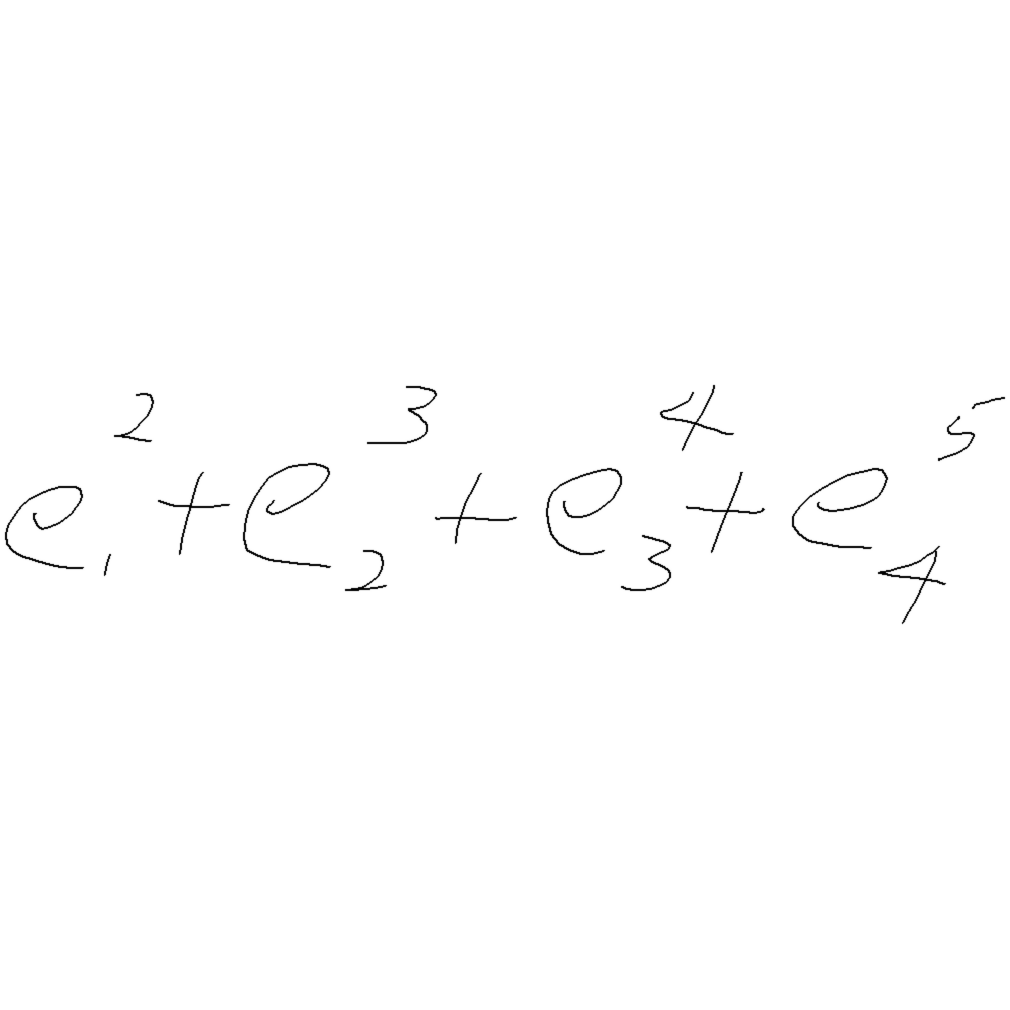 $e_1^2 + e_2^3 + e_3^4 + e_4^5$